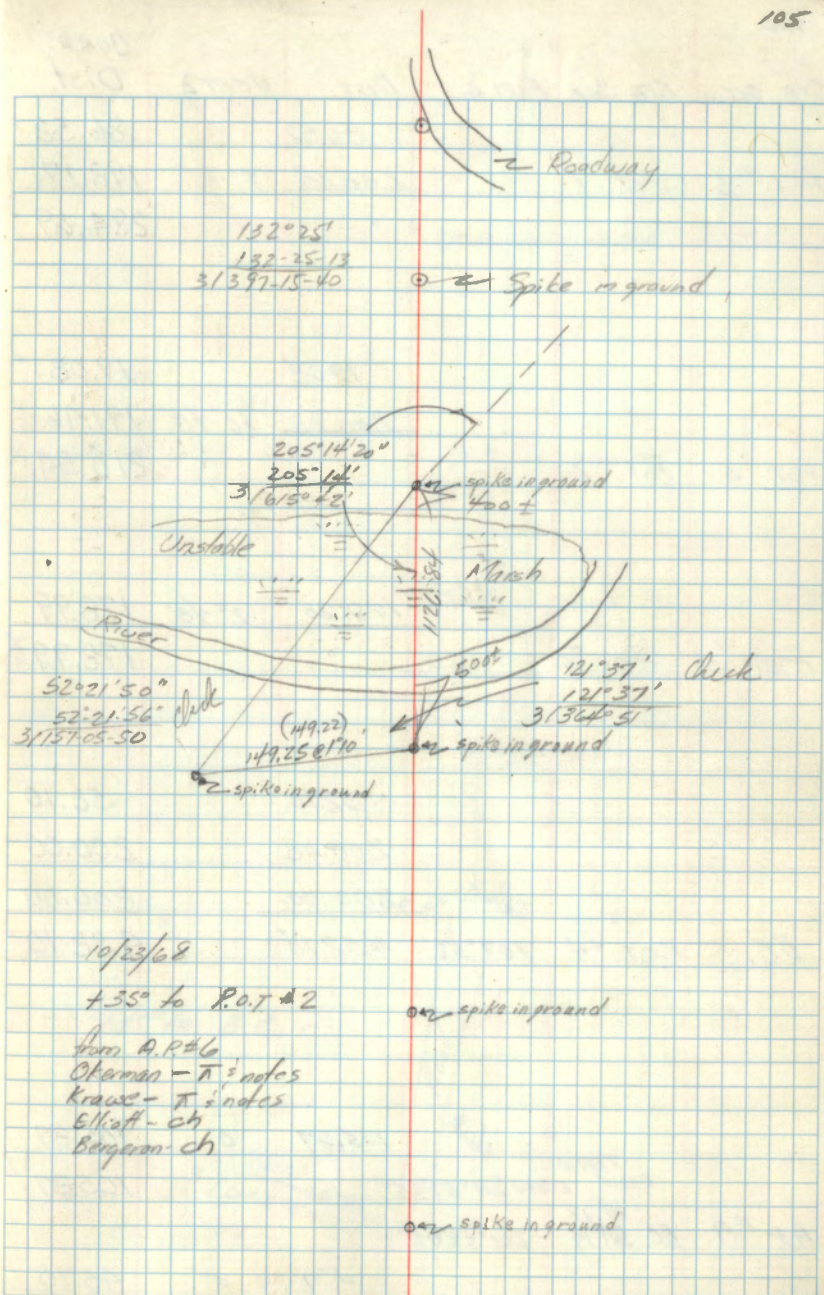 105
Roadway
132°25'
132-25-13
3/397-15-40
Spike in ground
205°14'20"
205°14'
3/615°42'
spike in ground
400±
Unstable
Marsh
River
500±
52°21'50"
52-21-56
3/157-05-50
check
121°37' Check
121°37'
3/364°51'
(149.22)
149.25@1°10'
spike in ground
spike in ground
10/23/68
+35° to P.O.T #2
from A.P.#6
Okerman - π & notes
Krawe - π & notes
Elliott - ch
Bergeron - ch
spike in ground
spike in ground